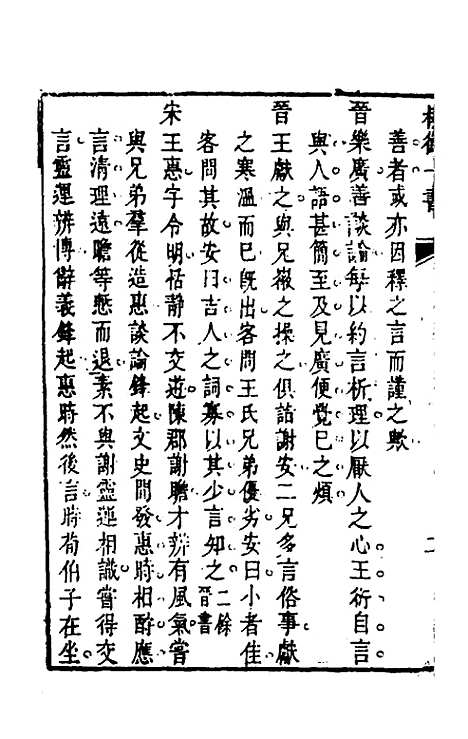 善者或亦因釋之言而謹之歟
晉樂廣善談論每以約言析理以厭人之心王衍自言
與人語甚簡至及見廣便覺已之煩
晉王獻之與兄徽之操之俱詣謝安二兄多言俗事獻
之寒溫而已旣出客問王氏兄弟優劣安曰小者佳
客問其故安曰吉人之詞寡以其少言知之二餘晉書
宋王惠字令明恬靜不交遊陳郡謝瞻才辨有風氣嘗
與兄弟羣從造惠談論鋒起文史間發惠時相酧應
言清理遠瞻等慙而退素不與謝靈運相識嘗得交
言靈運辨博辭義鋒起惠時然後言時荀伯子在坐